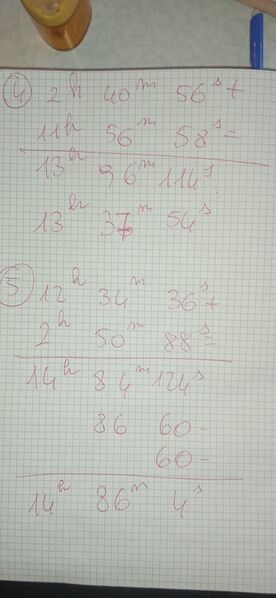 4 2h 40m 56s +
11h 56m 58s =
13h 96m 114s
13h 37m 54s
5 12h 34m 36s +
2h 50m 88s =
14h 84m 124s
86 60 -
60 -
14h 86m 4s